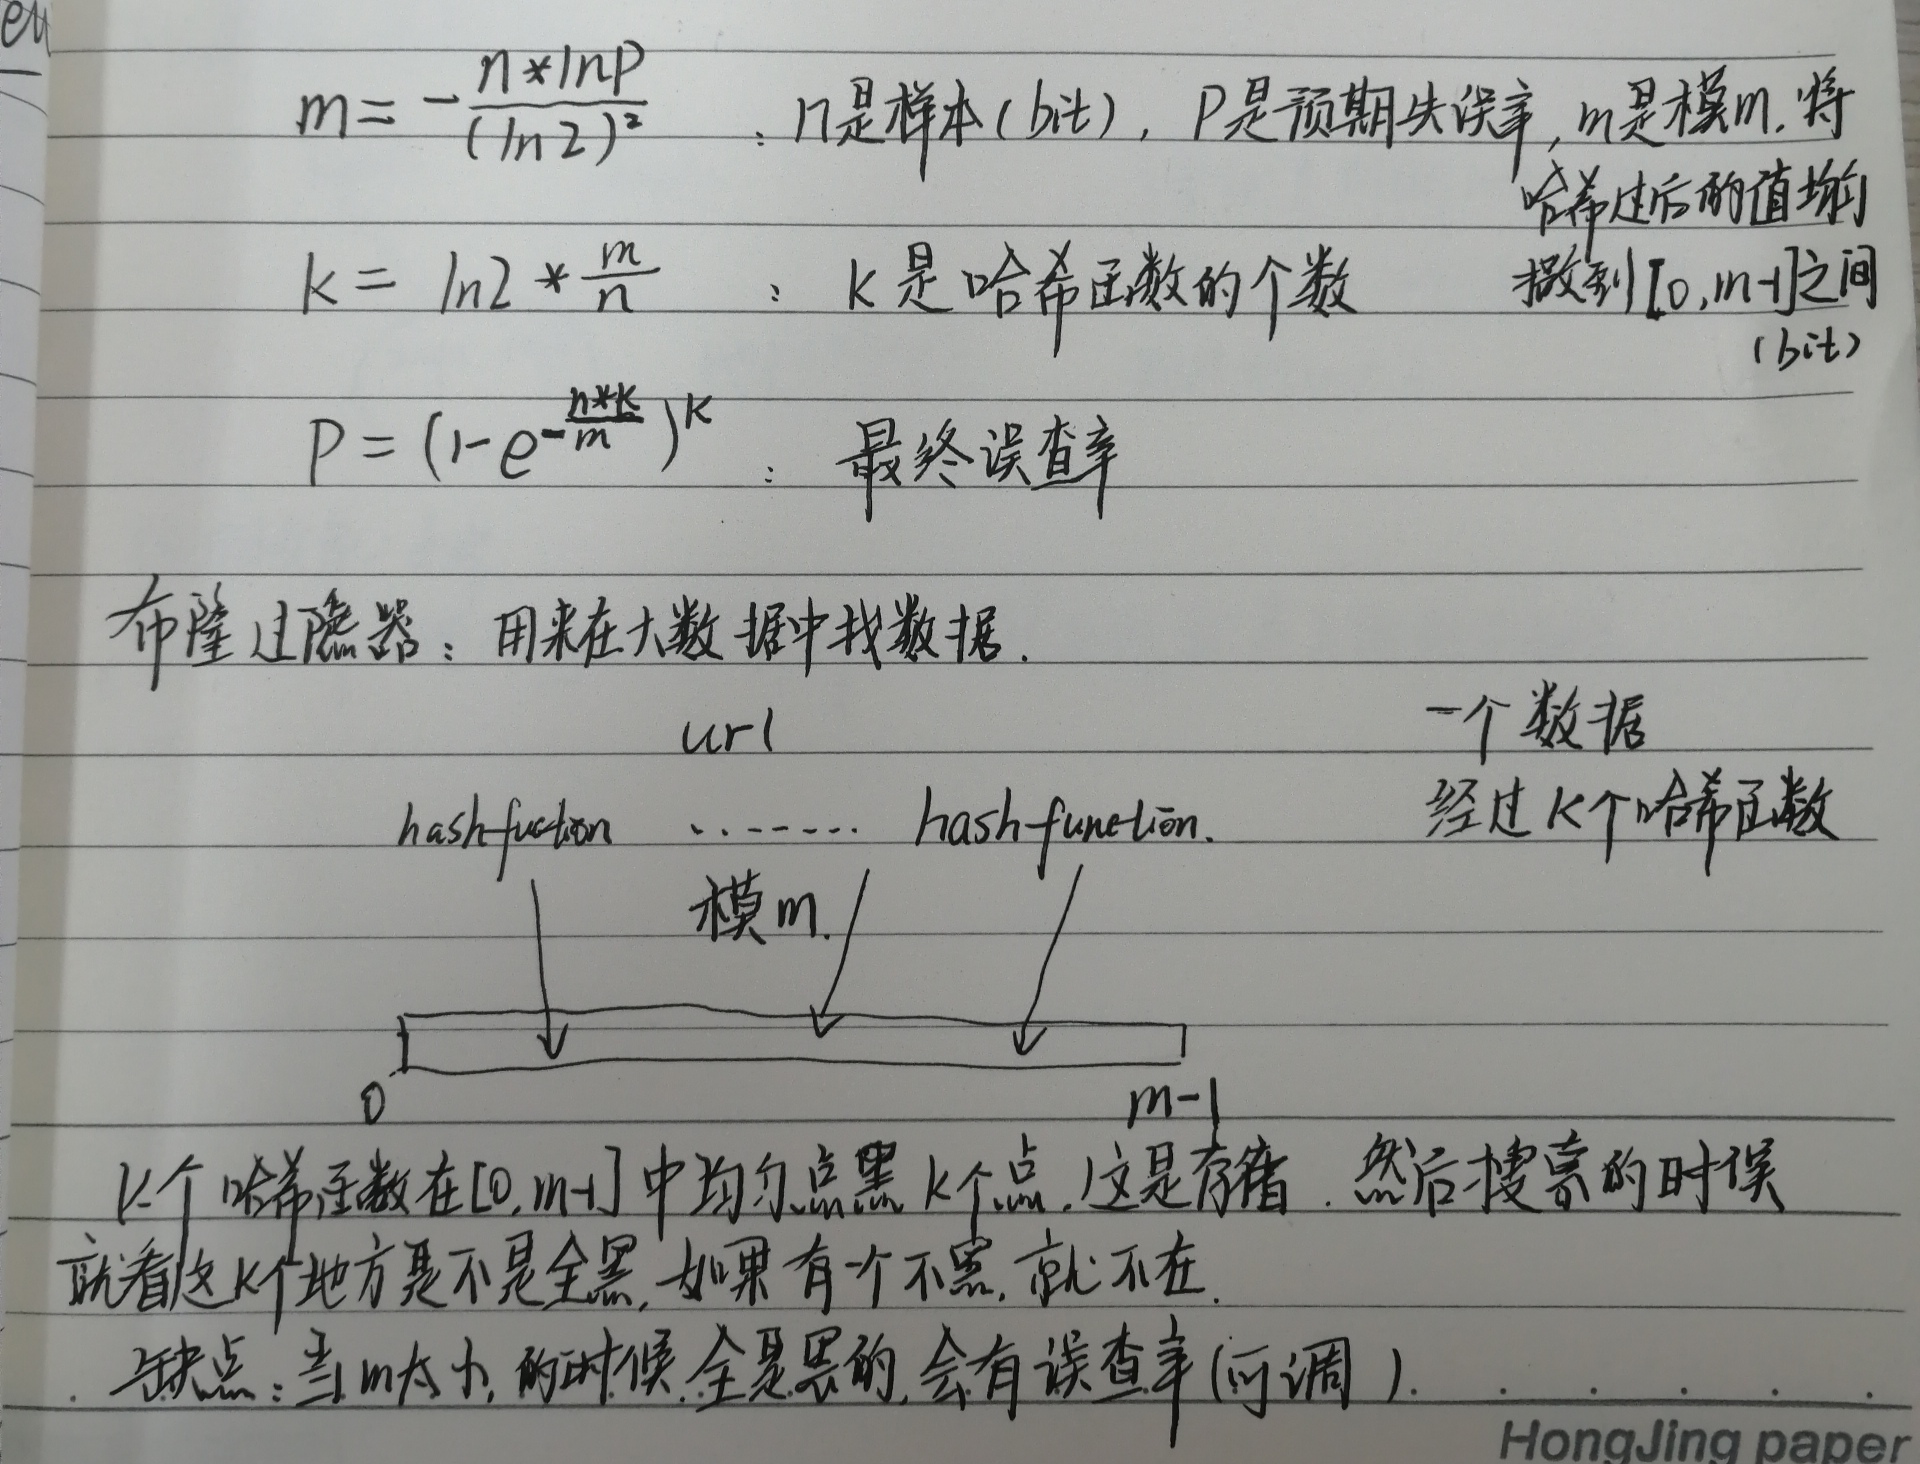 m = - n*lnP / (ln2)² : n是样本(bit), P是预期失误率, m是模m. 将
哈希过后的值均匀
撒到[0,m-1]之间
(bit)
k = ln2 * m/n : k是哈希函数的个数
P = (1-e^(-n*k/m))^k : 最终误查率
布隆过滤器: 用来在大数据中找数据.
url
一个数据
hashfuction ........ hashfunction.
经过K个哈希函数
模m.
0 m-1
K个哈希函数在[0,m-1]中均匀点黑K个点,这是存储.然后搜索的时候
就看这K个地方是不是全黑,如果有一个不黑,就不在.
缺点:当m太小的时候,全是黑的,会有误查率(可调).
HongJing paper